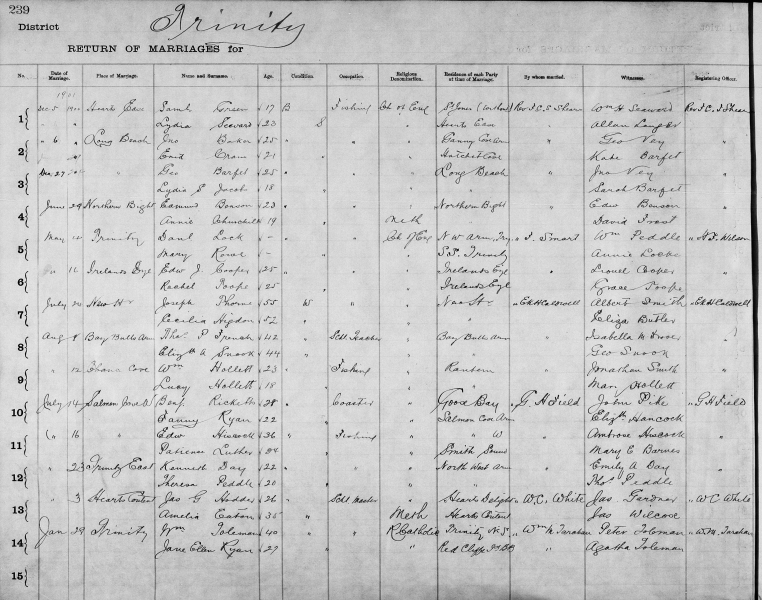 239
District Trinity
RETURN OF MARRIAGES for
No. Date of Marriage. Place of Marriage. Name and Surname. Age. Condition. Occupation. Religious Denomination. Residence of each Party at time of Marriage. By whom married. Witnesses. Registering Officer.
1901
1 Dec 5 1900 Hearts Ease Saml Green 17 B Fishing Ch of Eng Rev J.C.S. Wm H Seaward
" " Lydia Seward 23 S " Hearts Ease Allan
2 " 6 " Long Beach Jno Baker 25 " " " " Geo Vey "
Enid 21 " Kate Barfet
3 Dec 27 " Geo Barfet 25 " " " Long Beach " Jno Vey "
Lydia Jacob 18 " " Sarah Barfet
4 June 29 Northern Bight Edmund Benson 23 " " " Northern Bight " Edw Benson "
Annie Churchill 19 Meth " David Frost
5 May Trinity Danl Lock - " " Ch of Eng N W Arm, Try " J. Smart Wm Peddle " H. J. Wilson
Mary Rowe - " Trinity Annie Locke
6 11 Irelands Eye Edw J. Cooper 25 " " " Irelands Eye " Lionel Cooper "
Rachel Toope 25 " Irelands Eye Grace Toope
7 July New Hr Joseph Thorne 55 W " " New Hr " E K H Caldwell Albert Smith " E K H Caldwell
Cecilia Higdon 52 " " Eliza Butler
8 Aug 8 Bay Bulls Arm Thos P French 42 " Schl Teacher " Bay Bulls Arm " Isabella M "
Elizth A Snook 44 " " Geo Snook
9 " 12 Cove Wm Hollett 23 " Fishing " Rantem " Jonathan Smith "
Lucy Hollett 18 " " Mary Hollett
10 July 14 Salmon Cove Benj Ricketts 28 " Coaster " Good Bay " G. H Field John Pike " G H Field
Fanny Ryan 22 " Salmon Cove Elizth Hancock
11 " 16 " Edw Hiscock 26 " Fishing " " W " Ambrose Hiscock "
Patience Luther 24 " Smith Sound Mary E Barnes
12 " 23 Trinity East Kenneth Day 22 " " " North West Arm " Emily A Day "
Theresa Peddle 20 " " Thos Peddle
13 " 3 Hearts Content Jas G Hodder 26 " Schl Master " Hearts Delight " W.C. White Jas Gardner " W C White
Amelia Easton 35 " Meth Hearts Content Jas Wilcox
14 Jan 29 Trinity Wm Toleman 40 " " R Catholic Trinity N.S. " Wm M Tarahan Peter Toleman " W. M. Tarahan
Jane Ellen Ryan 27 " Red Cliffe Agatha Toleman
15